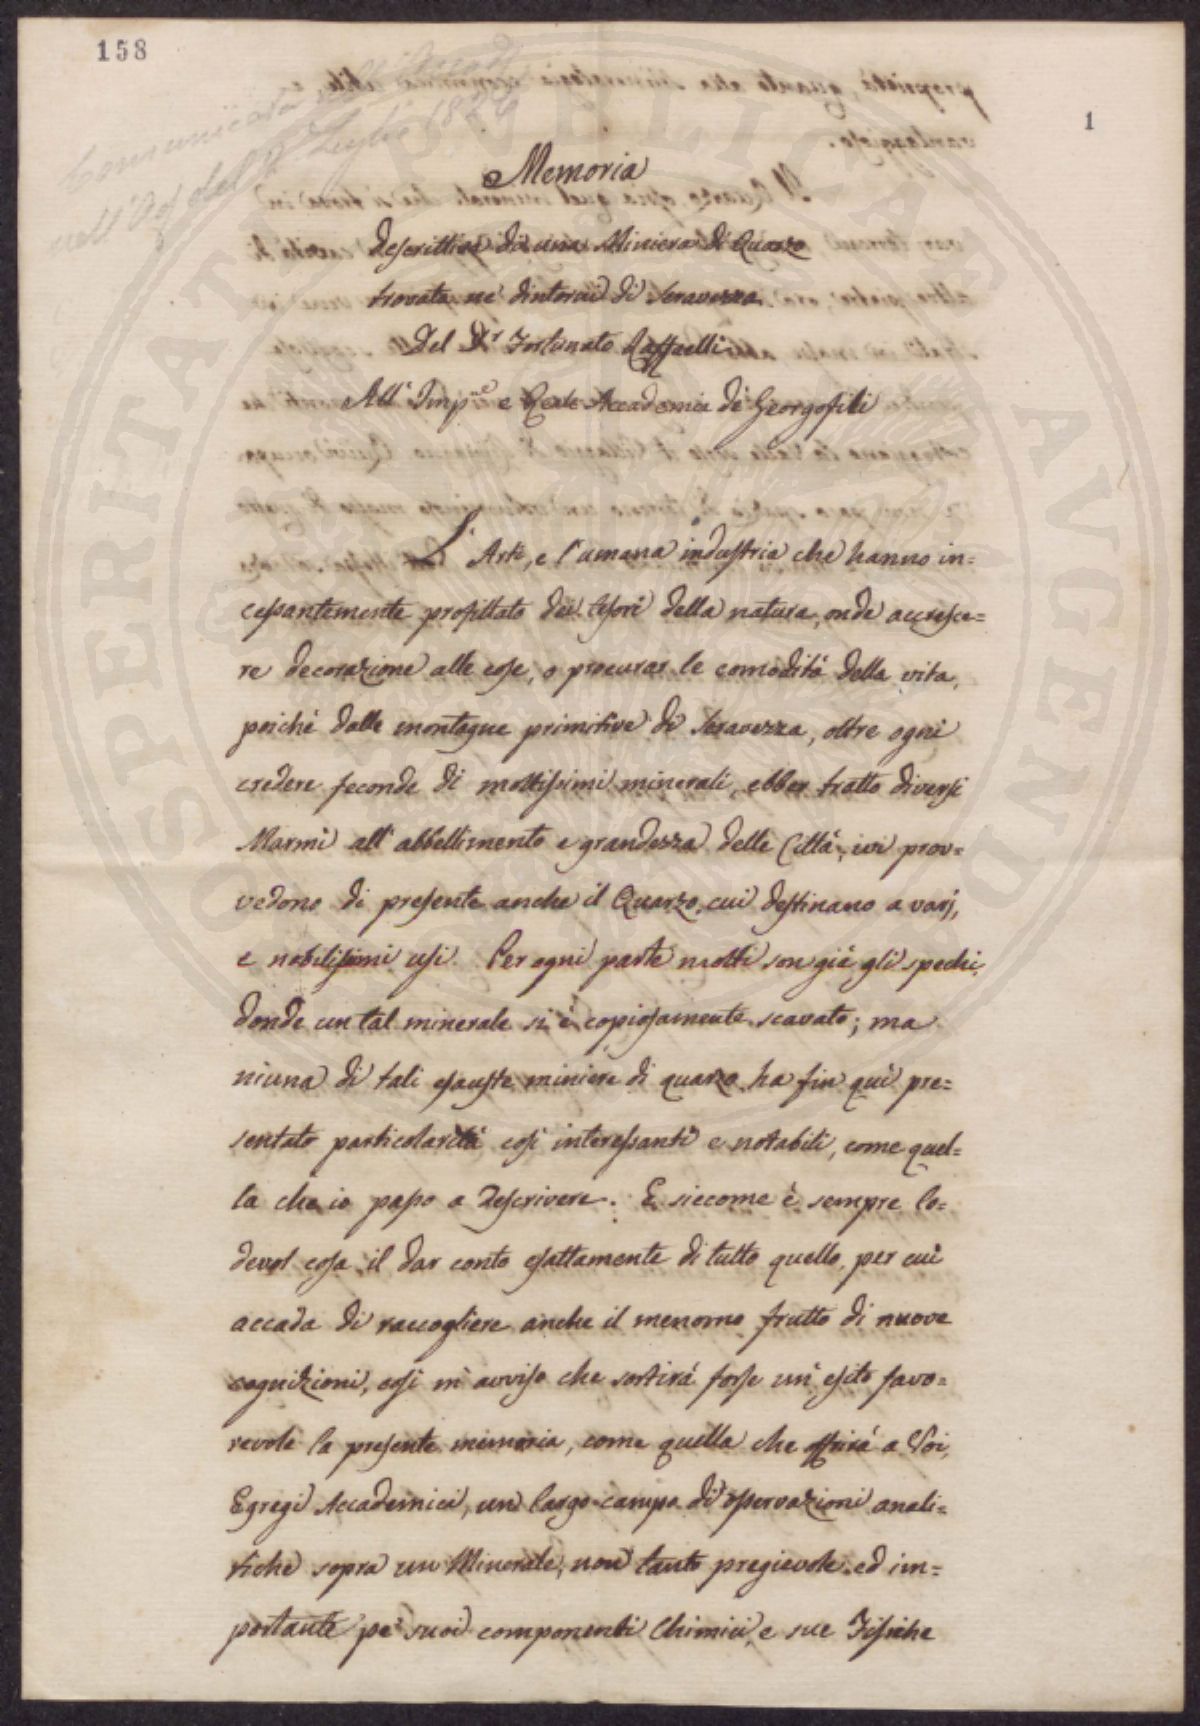 158
1
Comunicata all'Accad.
nell'Ad. del Luglio 182
Memoria
descrittiva di una Miniera di Quarzo
trovata ne' dintorni di Seravezza
Del Dr Fortunato Raffaelli
All' Imp.le e Reale Accademia de' Georgofili
L' Arti, e l'umana industria che hanno in=
cessantemente profittato dei tesori della natura, onde accresce=
re decorazione alle cose, o procurar le comodità della vita,
poichè dalle montagne primitive di Seravezza, oltre ogni
credere feconde di moltissimi minerali, ebber tratto diversi
Marmi all' abbellimento e grandezza delle Città, ivi prov=
vedono di presente anche il Quarzo, cui destinano a varj,
e nobilissimi usi. Per ogni parte molti son già gli spechi,
donde un tal minerale si è copiosamente scavato; ma
niuna di tali esauste miniere di quarzo ha fin quì pre=
sentato particolarità così interessanti e notabili, come quel=
la che io passo a descrivere. E siccome è sempre lo=
devol cosa il dar conto esattamente di tutto quello, per cui
accada di raccogliere anche il menomo frutto di nuove
cognizioni, così m' avviso che sortirà forse un' esito favo=
revole la presente memoria, come quella che offrirà a Voi,
Egregi Accademici, un largo campo di osservazioni anali=
tiche sopra un Minerale, non tanto pregievole ed im=
portante pe' suoi componenti Chimici, e sue Fisiche
SPERITATI PUBLICAE AUGENDAE